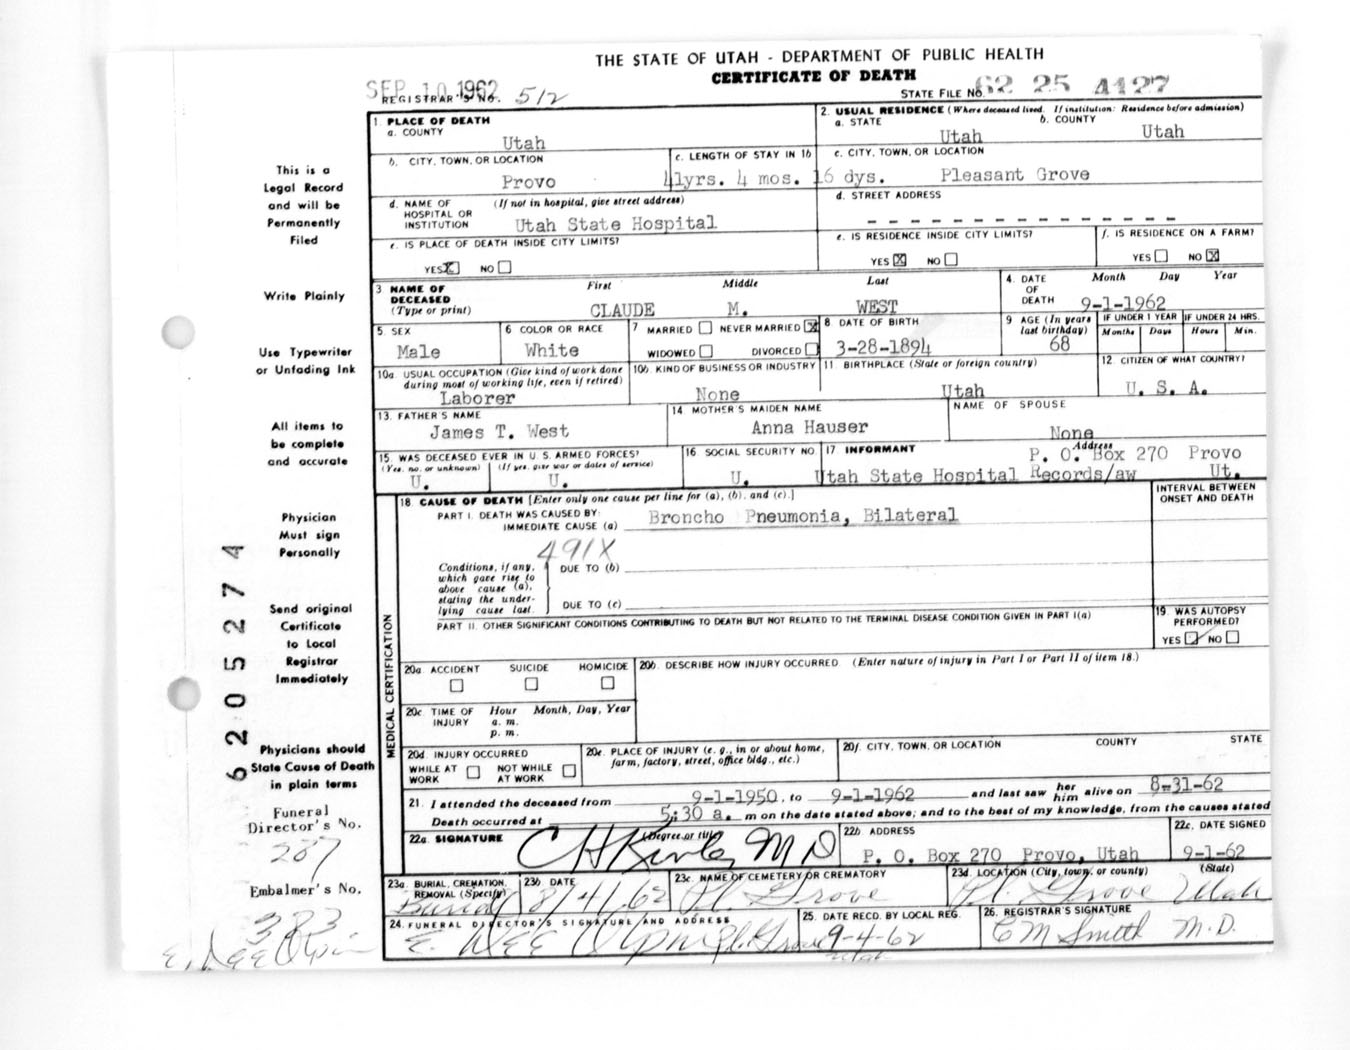 THE STATE OF UTAH - DEPARTMENT OF PUBLIC HEALTH
CERTIFICATE OF DEATH
SEP 10 1962
REGISTRAR'S NO. 512
STATE FILE NO. 62 25 4127
1. PLACE OF DEATH
a. COUNTY
Utah
2. USUAL RESIDENCE (Where deceased lived. If institution: Residence before admission)
a. STATE Utah b. COUNTY Utah
b. CITY, TOWN, OR LOCATION
Provo
c. LENGTH OF STAY IN 1b
41yrs. 4 mos. 16 dys.
c. CITY, TOWN, OR LOCATION
Pleasant Grove
d. NAME OF HOSPITAL OR INSTITUTION (If not in hospital, give street address)
Utah State Hospital
d. STREET ADDRESS
- - - - - - - - - - - - - - -
e. IS PLACE OF DEATH INSIDE CITY LIMITS?
YES X NO
e. IS RESIDENCE INSIDE CITY LIMITS?
YES X NO
f. IS RESIDENCE ON A FARM?
YES NO X
3 NAME OF DECEASED (Type or print)
First Middle Last
CLAUDE M. WEST
4. DATE OF DEATH Month Day Year
9-1-1962
5. SEX
Male
6 COLOR OR RACE
White
7 MARRIED NEVER MARRIED X
WIDOWED DIVORCED
8. DATE OF BIRTH
3-28-1894
9 AGE (In years last birthday)
68
IF UNDER 1 YEAR
Months Days
IF UNDER 24 HRS.
Hours Min.
10a. USUAL OCCUPATION (Give kind of work done during most of working life, even if retired)
Laborer
10b. KIND OF BUSINESS OR INDUSTRY
None
11. BIRTHPLACE (State or foreign country)
Utah
12. CITIZEN OF WHAT COUNTRY?
U. S. A.
13. FATHER'S NAME
James T. West
14 MOTHER'S MAIDEN NAME
Anna Hauser
NAME OF SPOUSE
None
15. WAS DECEASED EVER IN U. S. ARMED FORCES?
(Yes, no. or unknown) (If yes, give war or dates of service)
U. U.
16 SOCIAL SECURITY NO.
U.
17 INFORMANT Address
P. O. Box 270 Provo
Utah State Hospital Records/aw Ut.
18. CAUSE OF DEATH [Enter only one cause per line for (a), (b). and (c).]
INTERVAL BETWEEN ONSET AND DEATH
PART I. DEATH WAS CAUSED BY:
IMMEDIATE CAUSE (a) Broncho Pneumonia, Bilateral
491X
Conditions, if any, which gave rise to above cause (a), stating the underlying cause last.
DUE TO (b)
DUE TO (c)
PART II. OTHER SIGNIFICANT CONDITIONS CONTRIBUTING TO DEATH BUT NOT RELATED TO THE TERMINAL DISEASE CONDITION GIVEN IN PART I(a)
19. WAS AUTOPSY PERFORMED?
YES NO
MEDICAL CERTIFICATION
20a. ACCIDENT SUICIDE HOMICIDE
20b. DESCRIBE HOW INJURY OCCURRED. (Enter nature of injury in Part I or Part II of item 18.)
20c. TIME OF INJURY Hour Month, Day, Year
a. m.
p. m.
20d. INJURY OCCURRED
WHILE AT WORK NOT WHILE AT WORK
20e. PLACE OF INJURY (e. g., in or about home, farm, factory, street, office bldg., etc.)
20f. CITY, TOWN, OR LOCATION COUNTY STATE
21. I attended the deceased from 9-1-1950, to 9-1-1962 and last saw her him alive on 8-31-62
Death occurred at 5:30 a. m on the date stated above; and to the best of my knowledge, from the causes stated
22a. SIGNATURE (Degree or title)
M D
22b ADDRESS
P. O. Box 270 Provo, Utah
22c. DATE SIGNED
9-1-62
23a. BURIAL, CREMATION, REMOVAL (Specify)
Burial
23b DATE
8/4/62
23c. NAME OF CEMETERY OR CREMATORY
Pl. Grove
23d. LOCATION (City, town, or county) (State)
Pl. Grove Utah
24. FUNERAL DIRECTOR'S SIGNATURE AND ADDRESS
E. Dee Olpin Pl. Grove Utah
25. DATE RECD. BY LOCAL REG.
9-4-62
26. REGISTRAR'S SIGNATURE
C M Smith M.D.
This is a
Legal Record
and will be
Permanently
Filed
Write Plainly
Use Typewriter
or Unfading Ink
All items to
be complete
and accurate
Physician
Must sign
Personally
Send original
Certificate
to Local
Registrar
Immediately
Physicians should
State Cause of Death
in plain terms
Funeral
Director's No.
287
Embalmer's No.
383
E. Dee Olpin
6205274